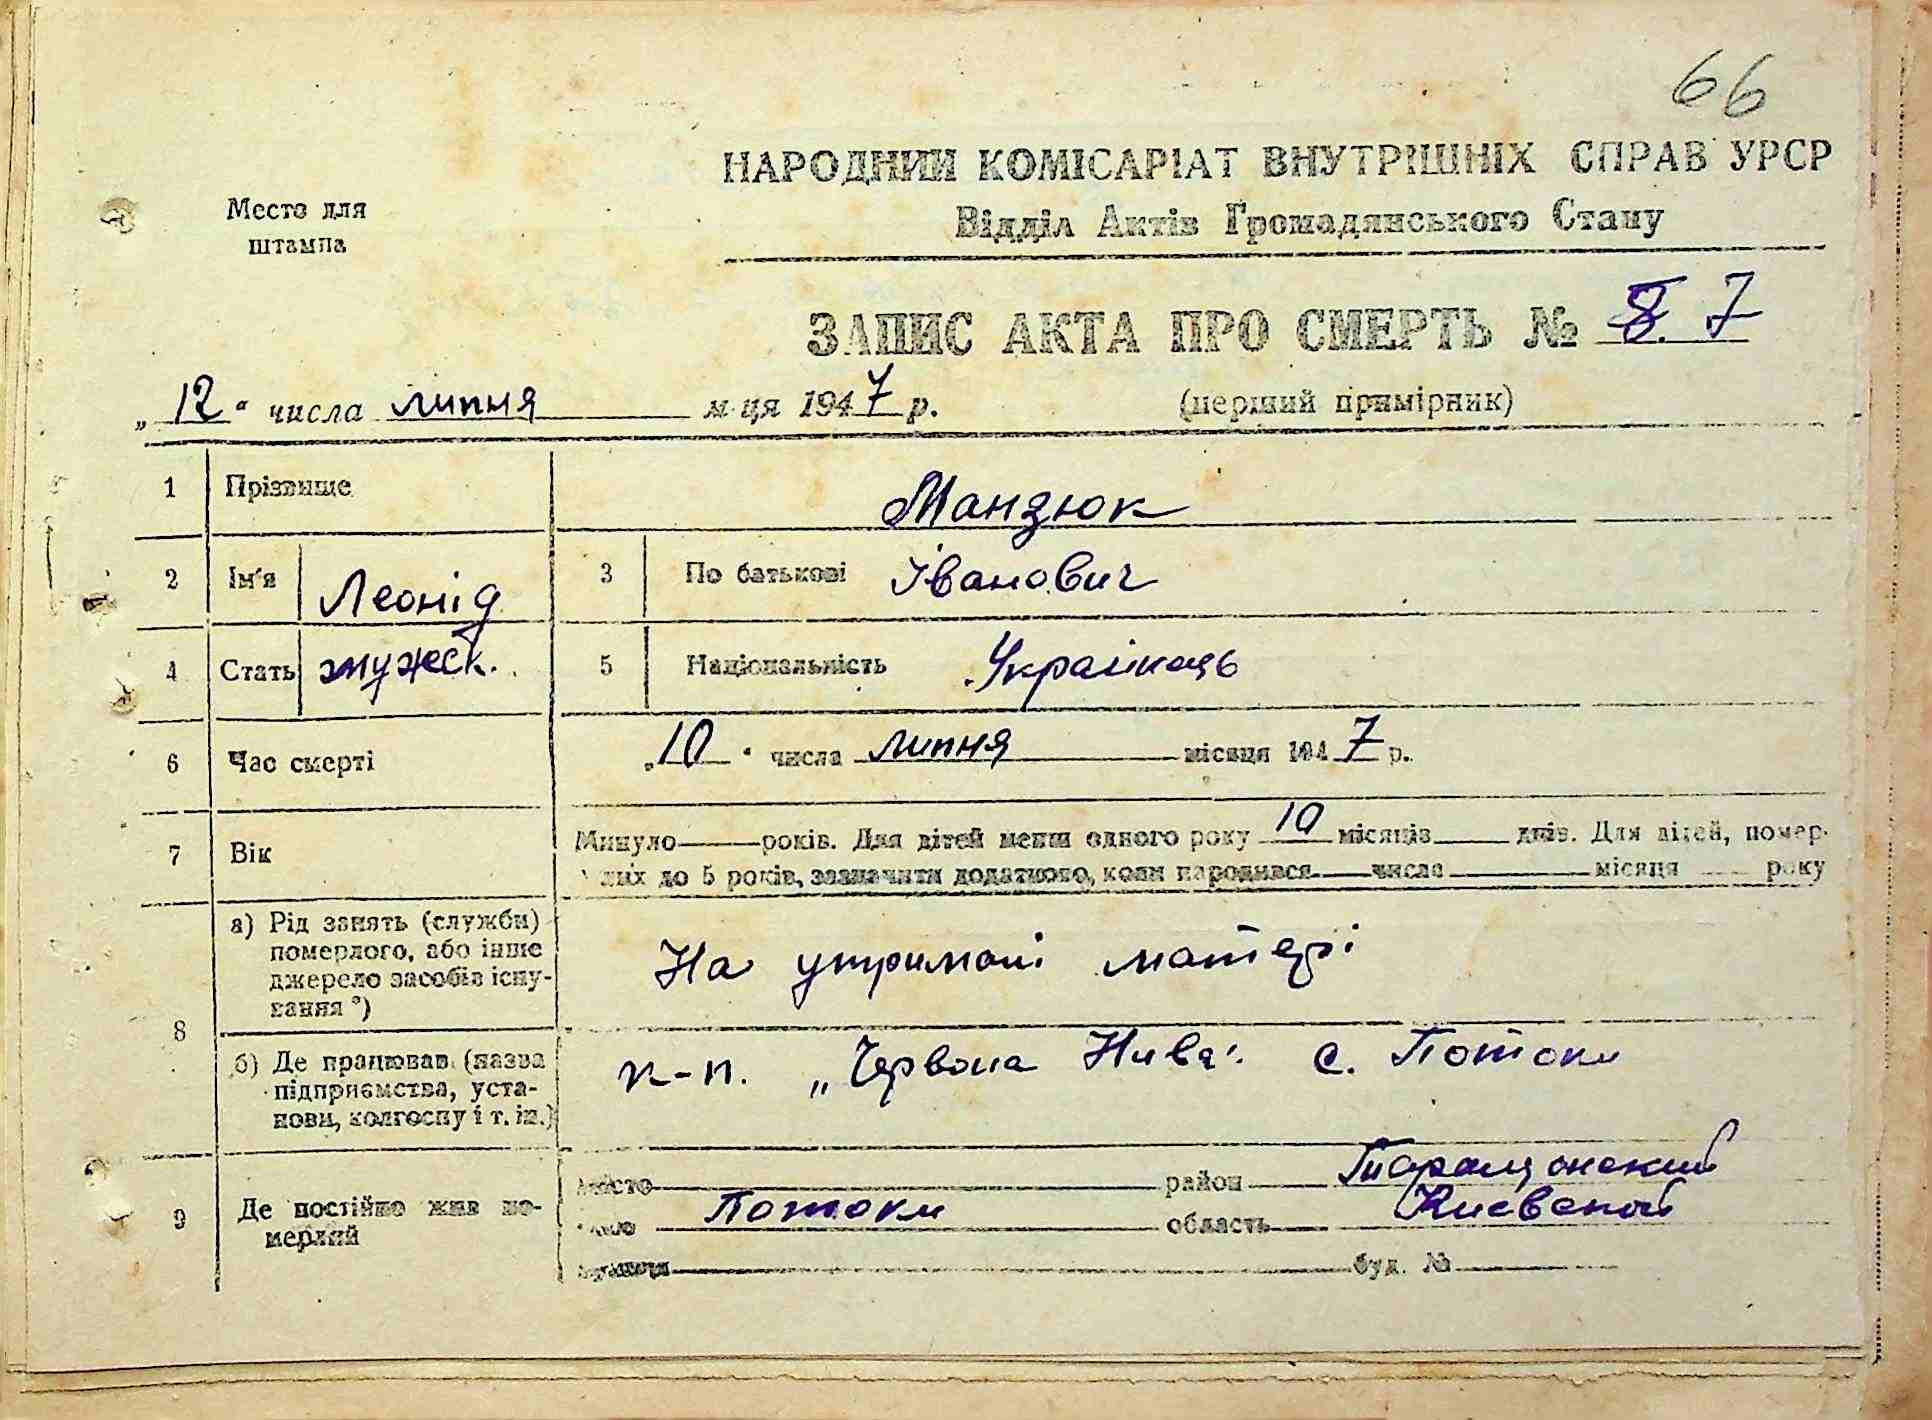 66
НАРОДНИЙ КОМІСАРІАТ ВНУТРІШНІХ СПРАВ УРСР
Відділ Актів Громадянського Стану
Место для
штампа
ЗАПИС АКТА ПРО СМЕРТЬ № 7
„12“ числа липня м-ця 1947 р. (перший примірник)
1 Прізвище Мандюк
2 Ім'я Леонід 3 По батькові Іванович
4 Стать мужеск. 5 Національність Українець
6 Час смерті „10“ числа липня місяця 1947 р.
7 Вік Минуло — років. Для дітей менш одного року 10 місяців — днів. Для дітей, помер-
лих до 5 років, зазначити додатково, коли народився — числа — місяця — року
8 а) Рід занять (служби)
померлого, або інше
джерело засобів існу-
вання *)
На утримані матері
б) Де працював (назва
підприємства, уста-
нови, колгоспу і т. ін.)
к-п. „Червона Нива". с. Потоки
9 Де постійно жив по-
мерлий
місто — район Таращанский
село Потоки область Киевской
вулиця — буд. № —